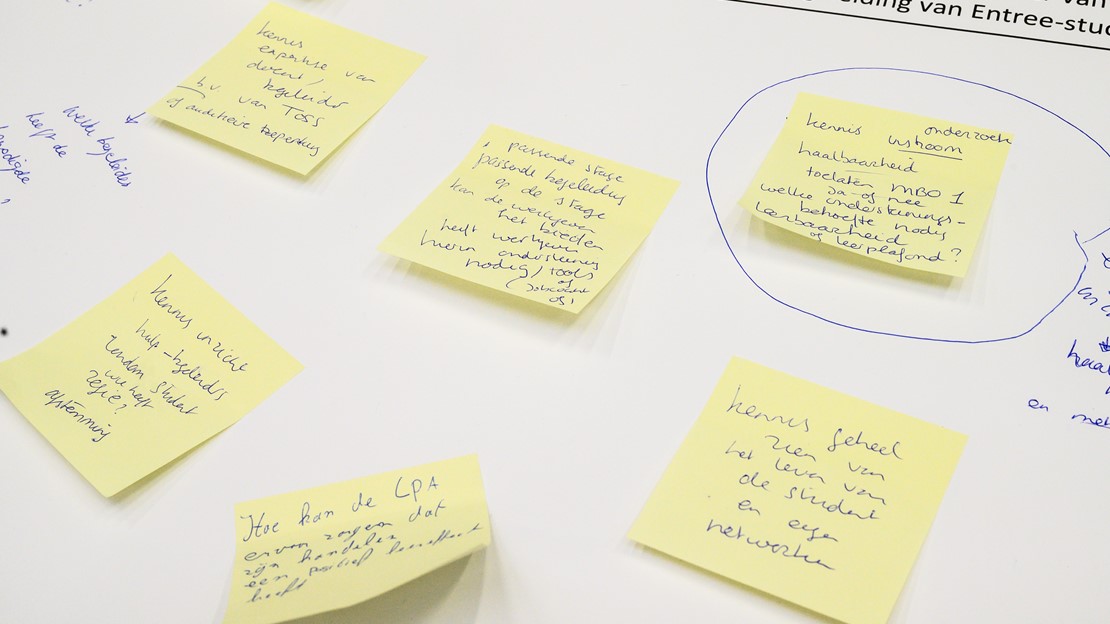 van
ding van Entree-stud
kennis
expertise van
docent /
begeleider
b.v. van TOSS
of auditieve beperking
welke begeleider
heeft de
nodige
?
passende stage
passende begeleiding
op de stage
kan de werkgever
het bieden
heeft werkgever
hierin ondersteuning
nodig / tools
of
(jobcoach
of)
kennis onderzoek
instroom
haalbaarheid
toelaten MBO 1
Ja of nee
welke ondersteunings-
behoefte nodig
leerbaarheid
of leerplafond?
kennis inzicht
hulp-begeleiders
rondom student
wie heeft
regie?
afstemming
Hoe kan de LPA
ervoor zorgen dat
zijn handelen
een positief leereffect
heeft
kennis geheel
zien van
het leven van
de student
en eigen
netwerken
haal
en met